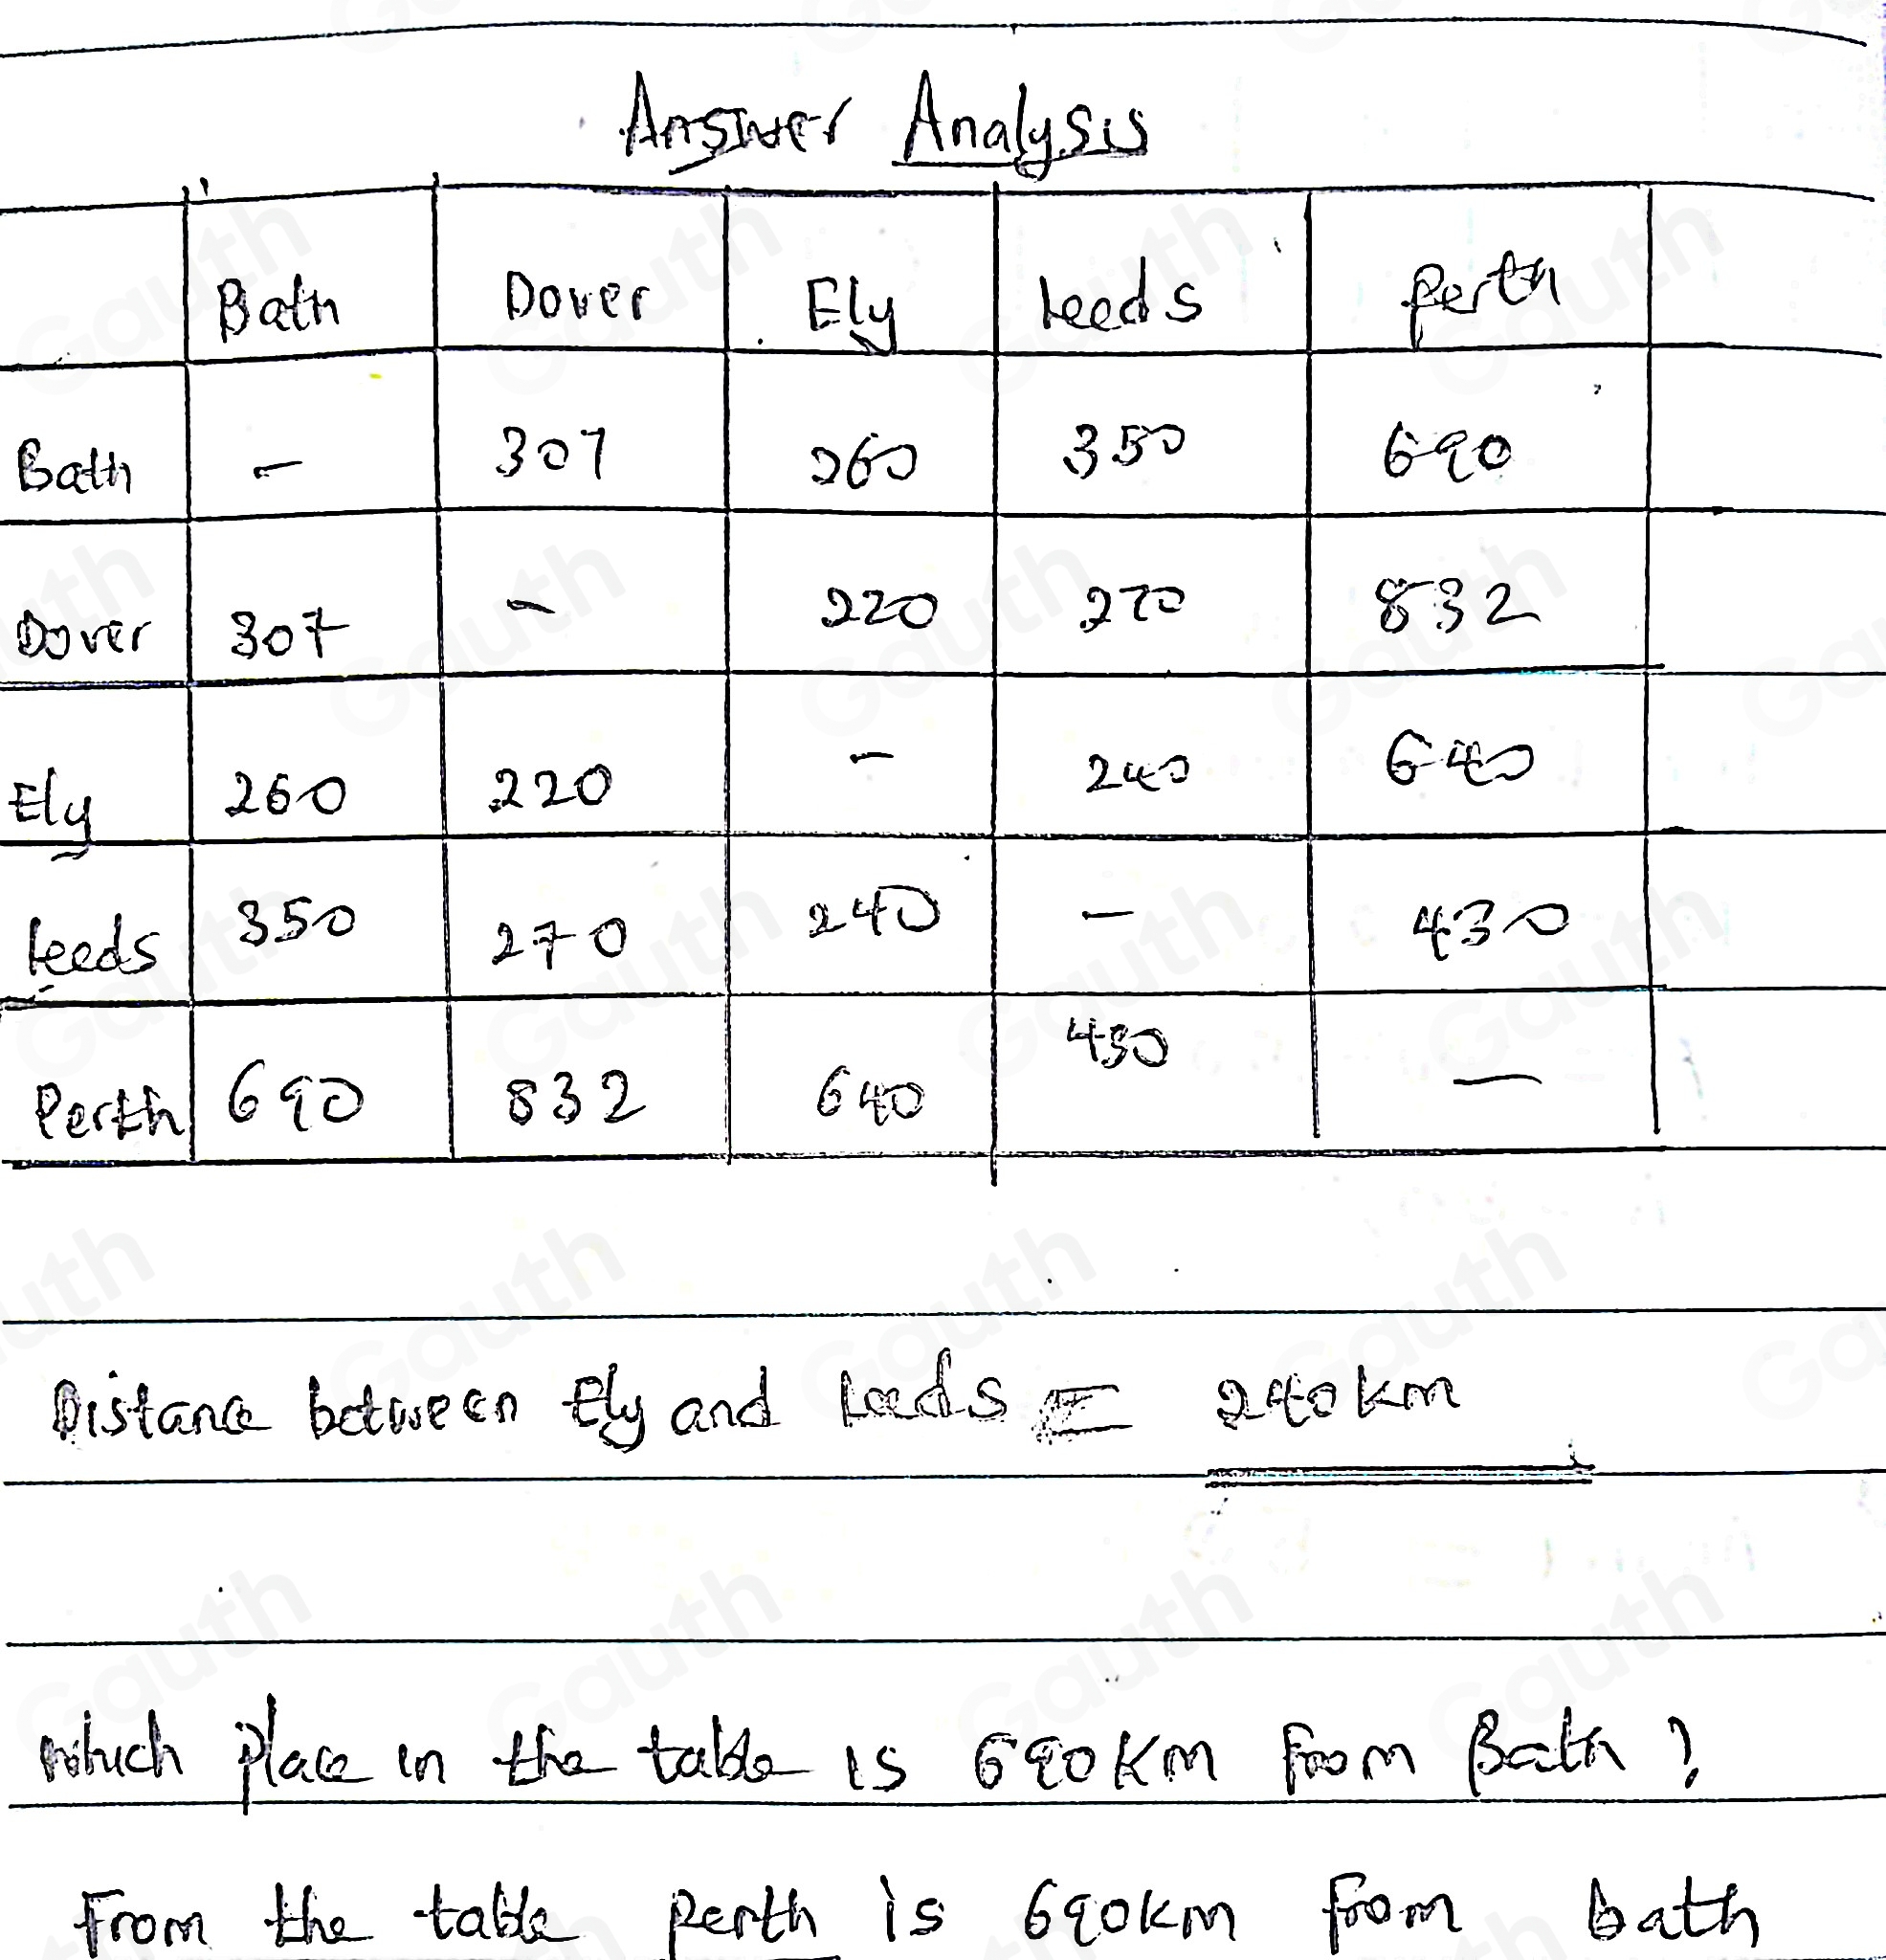 Answer Analysis
Bath Dover Ely Leeds Perth
Bath - 307 260 350 690
Dover 307 - 220 270 832
Ely 260 220 - 240 640
Leeds 350 270 240 - 430
Perth 690 832 640 430 -
Distance between Ely and Leeds = 240km
which place in the table is 690km from Bath?
From the table perth is 690km from bath